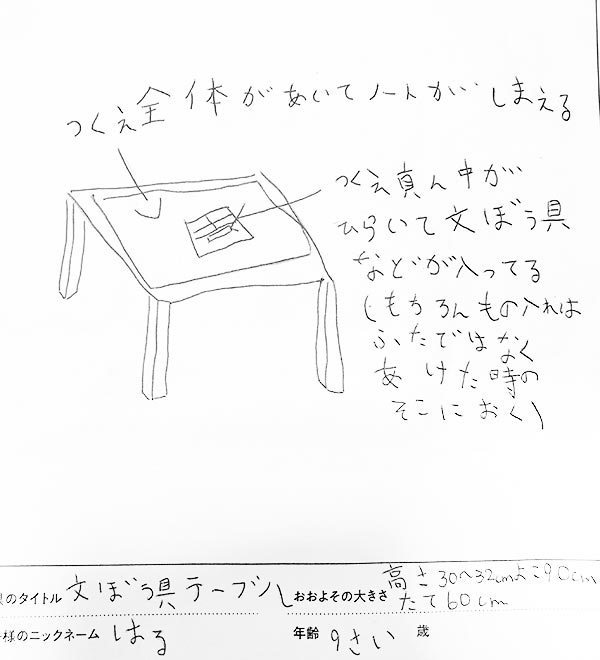 つくえ全体があいてノートがしまえる
つくえ真ん中が
ひらいて文ぼう具
などが入ってる
(もちろんもの入れは
ふたではなく
あけた時の
そこにおく)
のタイトル 文ぼう具テーブル
おおよその大きさ 高さ30〜32cmよこ90cm
たて60cm
様のニックネーム はる
年齢 9さい 歳